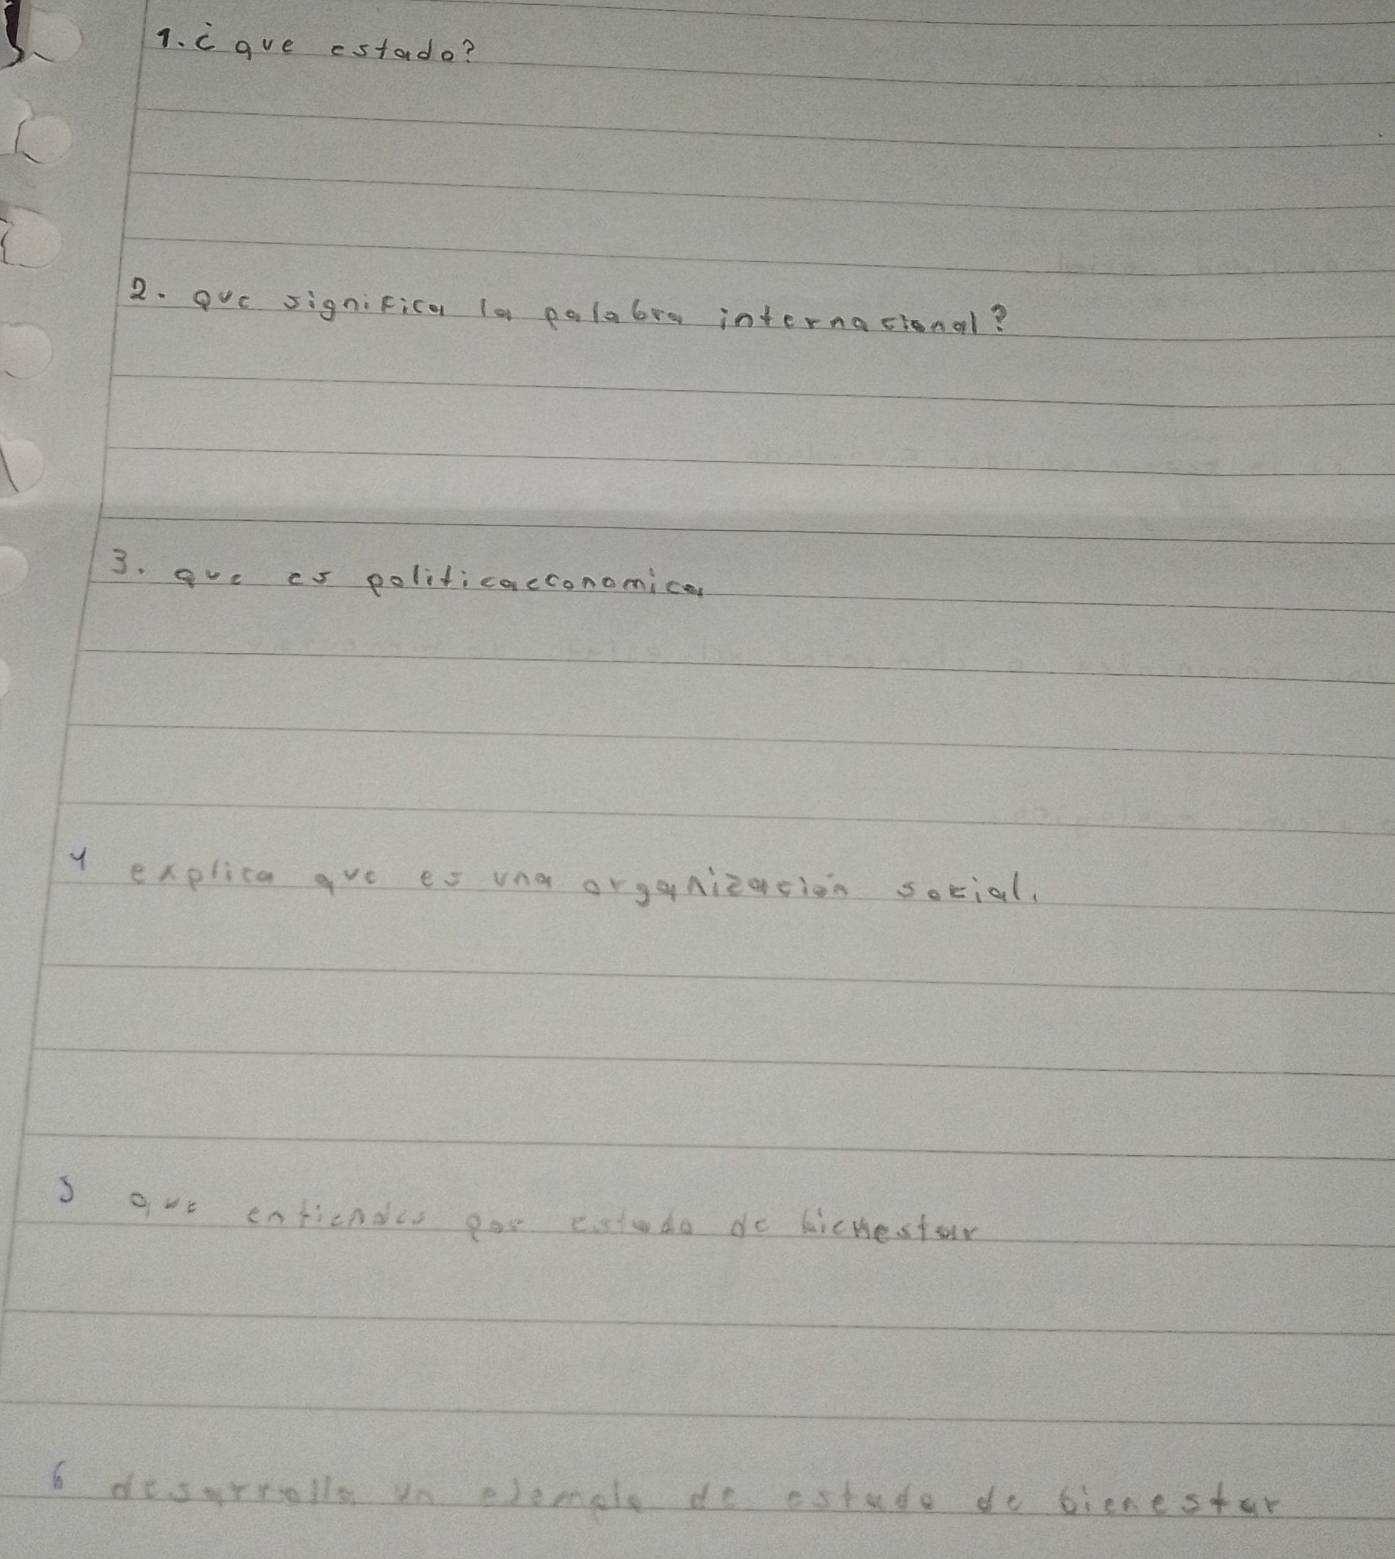 1. ¿ que estado?
2. que significa la palabra internacional?
3. que es politicaeconomica
4 explica que es una organización social.
5 que entiendes por estado de bienestar
6 desarrolla un ejemplo de estado de bienestar